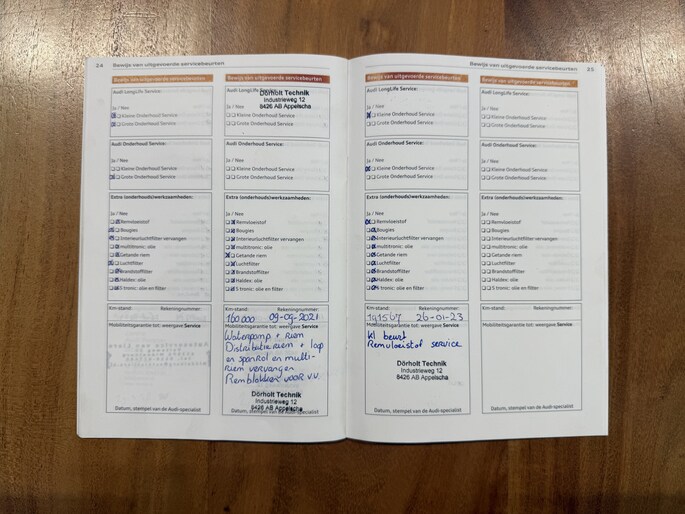 24 Bewijs van uitgevoerde servicebeurten
Bewijs van uitgevoerde servicebeurten
Audi LongLife Service:
Ja / Nee
Kleine Onderhoud Service
Grote Onderhoud Service
Audi Onderhoud Service:
Ja / Nee
Kleine Onderhoud Service
Grote Onderhoud Service
Extra (onderhouds)werkzaamheden:
Ja / Nee
Remvloeistof
Bougies
Interieurluchtfilter vervangen
multitronic: olie
Getande riem
Luchtfilter
Brandstoffilter
Haldex: olie
S tronic: olie en filter
Km-stand: Rekeningnummer:
Mobiliteitsgarantie tot: weergave Service
Datum, stempel van de Audi-specialist
Bewijs van uitgevoerde servicebeurten
Audi LongLife
Dörholt Technik
Industrieweg 12
8426 AB Appelscha
Ja / Nee
Kleine Onderhoud Service
Grote Onderhoud Service
Audi Onderhoud Service:
Ja / Nee
Kleine Onderhoud Service
Grote Onderhoud Service
Extra (onderhouds)werkzaamheden:
Ja / Nee
Remvloeistof
Bougies
Interieurluchtfilter vervangen
multitronic: olie
Getande riem
Luchtfilter
Brandstoffilter
Haldex: olie
S tronic: olie en filter
Km-stand: Rekeningnummer:
160 000 09-09-2021
Mobiliteitsgarantie tot: weergave Service
Waterpomp + Riem
Distributie riem + loop
en spanrol en multi-
riem vervangen
Remblokken voor v.v.
Dörholt Technik
Industrieweg 12
8426 AB Appelscha
Datum, stempel van de Audi-specialist
Bewijs van uitgevoerde servicebeurten 25
Bewijs van uitgevoerde servicebeurten
Audi LongLife Service:
Ja / Nee
Kleine Onderhoud Service
Grote Onderhoud Service
Audi Onderhoud Service:
Ja / Nee
Kleine Onderhoud Service
Grote Onderhoud Service
Extra (onderhouds)werkzaamheden:
Ja / Nee
Remvloeistof
Bougies
Interieurluchtfilter vervangen
multitronic: olie
Getande riem
Luchtfilter
Brandstoffilter
Haldex: olie
S tronic: olie en filter
Km-stand: Rekeningnummer:
26-01-23
Mobiliteitsgarantie tot: weergave Service
Kl beurt
Remvloeistof service
Dörholt Technik
Industrieweg 12
8426 AB Appelscha
Datum, stempel van de Audi-specialist
Bewijs van uitgevoerde servicebeurten
Audi LongLife Service:
Ja / Nee
Kleine Onderhoud Service
Grote Onderhoud Service
Audi Onderhoud Service:
Ja / Nee
Kleine Onderhoud Service
Grote Onderhoud Service
Extra (onderhouds)werkzaamheden:
Ja / Nee
Remvloeistof
Bougies
Interieurluchtfilter vervangen
multitronic: olie
Getande riem
Luchtfilter
Brandstoffilter
Haldex: olie
S tronic: olie en filter
Km-stand: Rekeningnummer:
Mobiliteitsgarantie tot: weergave Service
Datum, stempel van de Audi-specialist